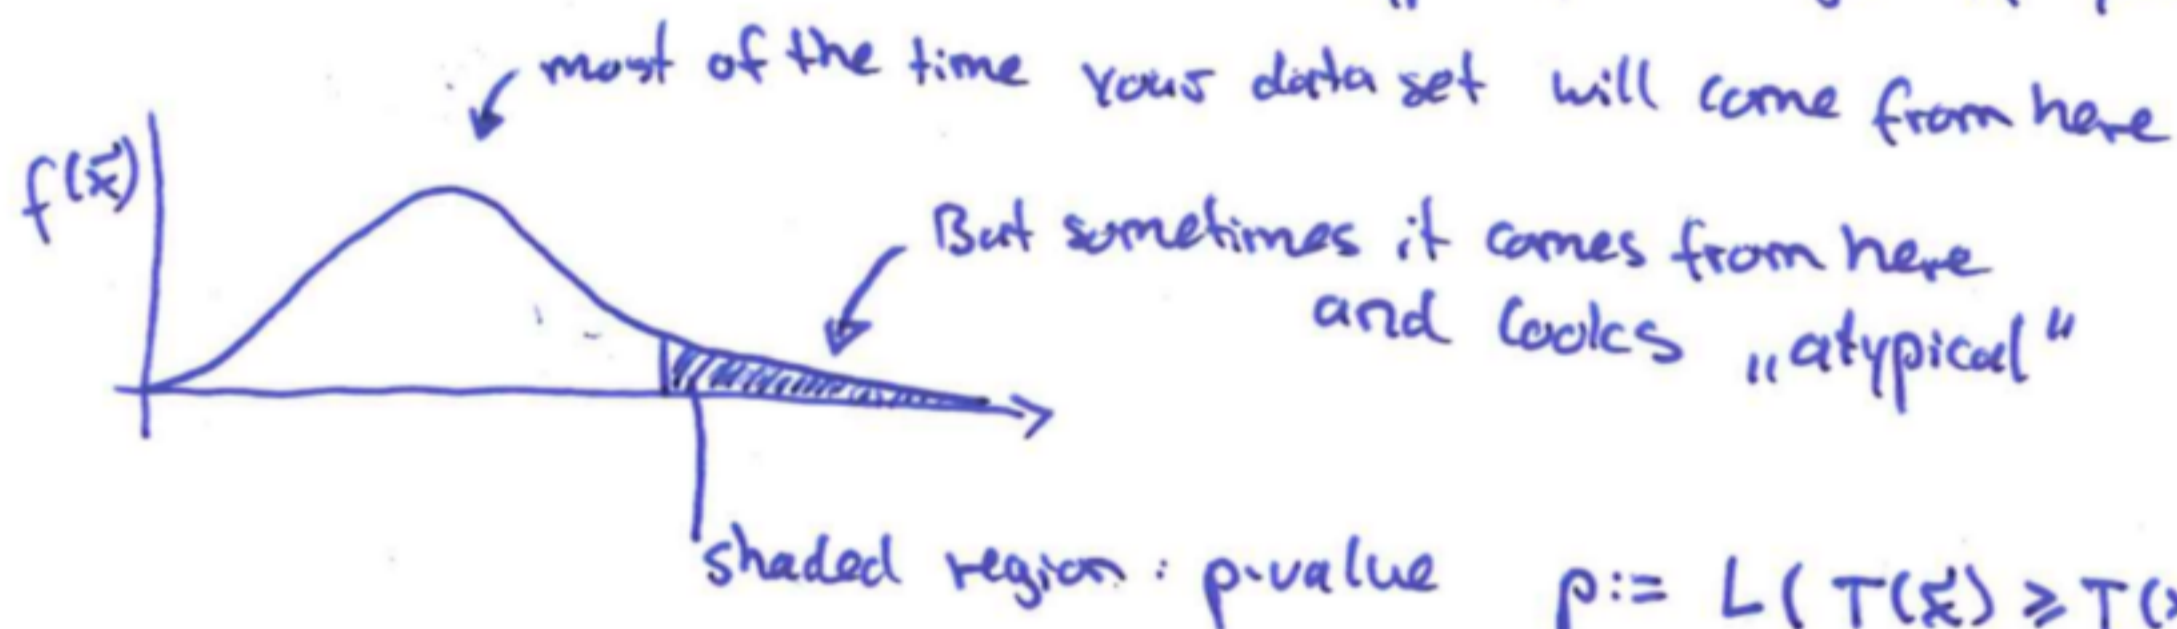 most of the time your data set will come from here
f(x̃)
But sometimes it comes from here
and looks „atypical"
shaded region: p-value p:= L( T(x̃) ≥ T(